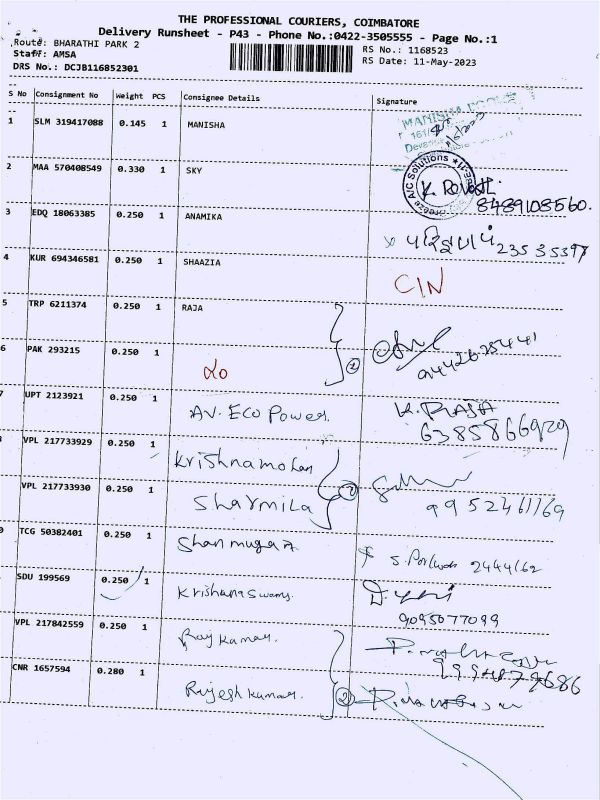 THE PROFESSIONAL COURIERS, COIMBATORE
Delivery Runsheet - P43 - Phone No.:0422-3505555 - Page No.:1
Route: BHARATHI PARK 2
RS No.: 1168523
Staff: AMSA
RS Date: 11-May-2023
DRS No.: DCJB116852301
S No Consignment No Weight PCS Consignee Details Signature
1 SLM 319417088 0.145 1 MANISHA
MANISHA
161/
2 MAA 570408549 0.330 1 SKY
A/C Solutions
K. Revathi
8489108560.
3 EDQ 18063385 0.250 1 ANAMIKA
23535397
4 KUR 694346581 0.250 1 SHAAZIA C/N
5 TRP 6211374 0.250 1 RAJA
6 PAK 293215 0.250 1 ②
7 UPT 2123921 0.250 1 AV. ECo Power. K. RAJA
6385866929
VPL 217733929 0.250 1 Krishnamohan
VPL 217733930 0.250 1 Sharmila ② 9952461169
TCG 50382401 0.250 1 Shanmugan 2444162
SDU 199569 0.250 1 Krishnaswamy.
9095077099
VPL 217842559 0.250 1 Raj Kumar.
9994879686
CNR 1657594 0.280 1 Rajesh kumar. ②